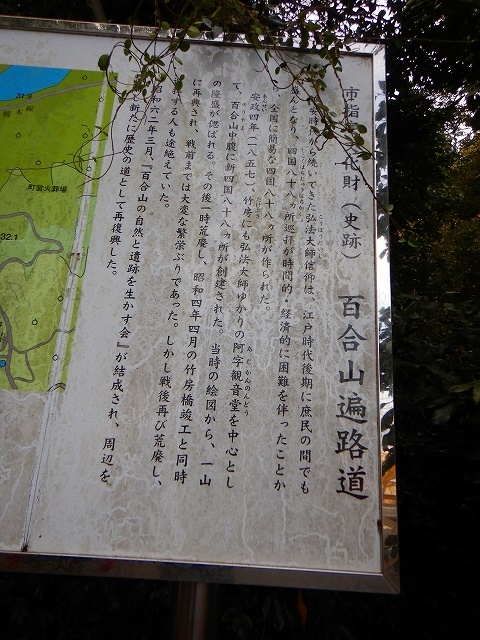 市指定文化財(史跡) 百合山遍路道
時代から続いてきた弘法大師信仰は、江戸時代後期に庶民の間でも
盛んとなり、四国八十八ヵ所巡拝が時間的・経済的に困難を伴ったことか
ら、全国に簡易な四国八十八ヵ所が作られた。
安政四年(一八五七)、竹房にも弘法大師ゆかりの阿字観音堂を中心とし
て、百合山中腹に新四国八十八ヵ所が創建された。当時の絵図から、一山
の隆盛が偲ばれる。その後一時荒廃し、昭和四年四月の竹房橋竣工と同時
に再興され、戦前までは大変な繁栄ぶりであった。しかし戦後再び荒廃し、
する人も途絶えていた。
昭和六二年三月、『百合山の自然と遺跡を生かす会』が結成され、周辺を
新たに歴史の道として再復興した。
37.9
橋本線
町営火葬場
32.1